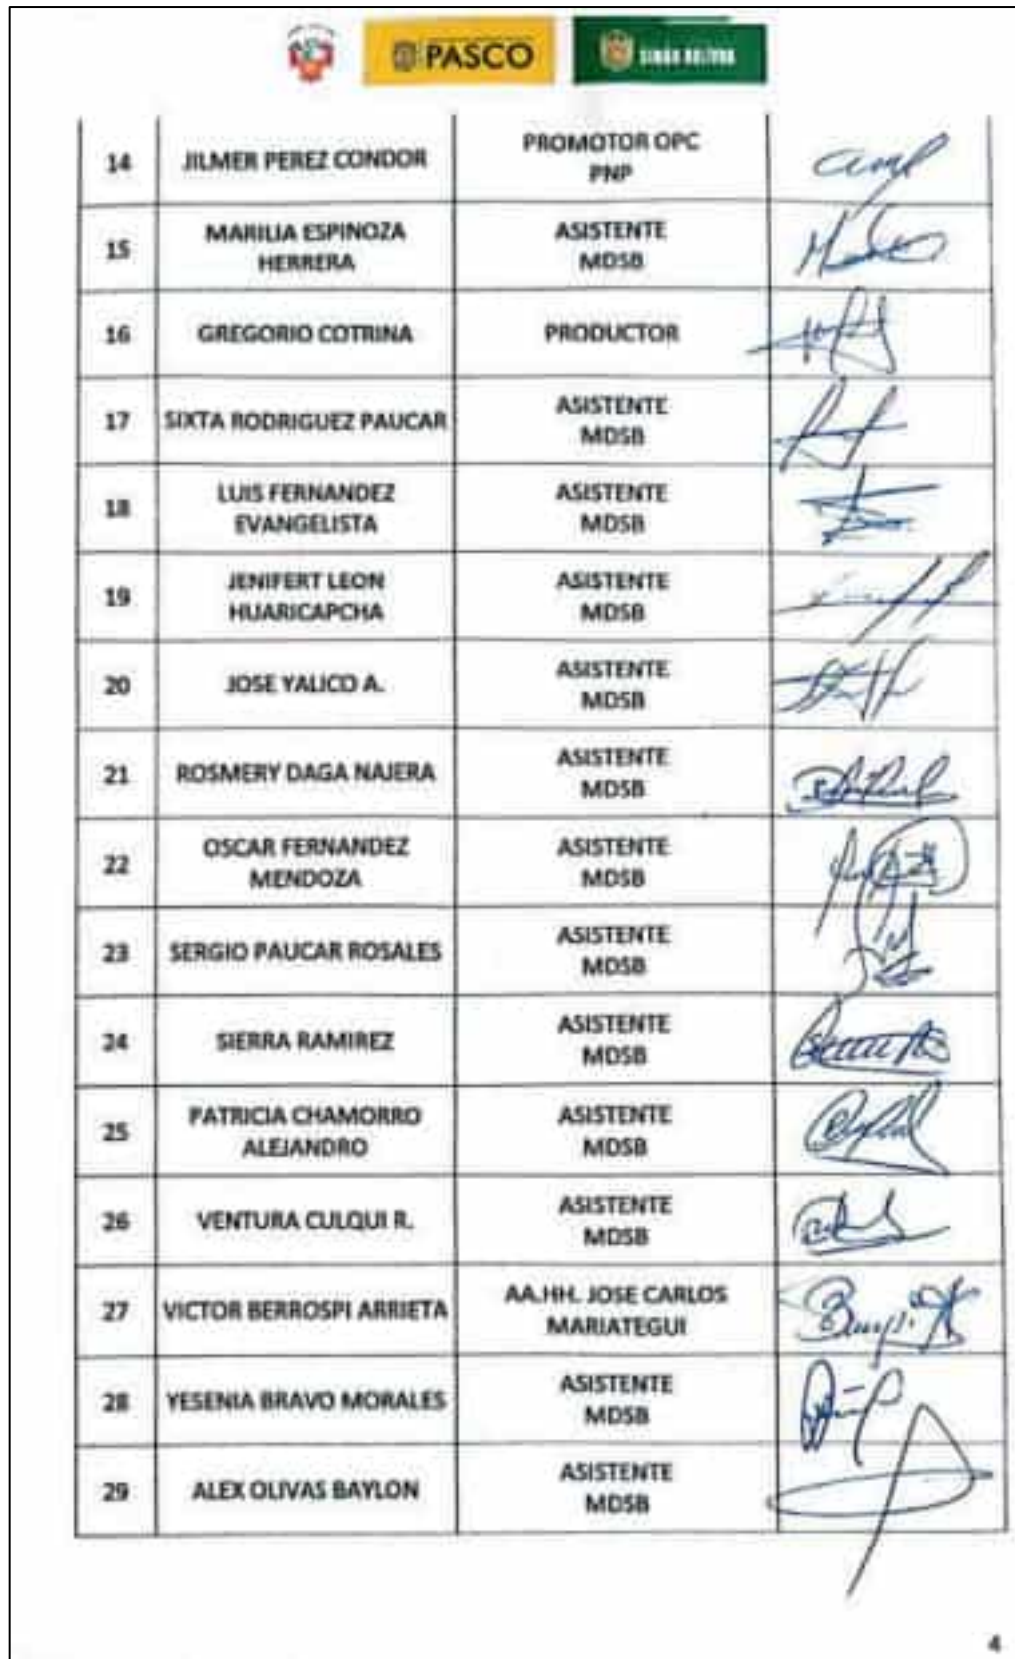 PASCO
SIMÓN BOLÍVAR
14 JILMER PEREZ CONDOR PROMOTOR OPC
PNP
15 MARILIA ESPINOZA HERRERA ASISTENTE
MDSB
16 GREGORIO COTRINA PRODUCTOR
17 SIXTA RODRIGUEZ PAUCAR ASISTENTE
MDSB
18 LUIS FERNANDEZ EVANGELISTA ASISTENTE
MDSB
19 JENIFERT LEON HUARICAPCHA ASISTENTE
MDSB
20 JOSE YALICO A. ASISTENTE
MDSB
21 ROSMERY DAGA NAJERA ASISTENTE
MDSB
22 OSCAR FERNANDEZ MENDOZA ASISTENTE
MDSB
23 SERGIO PAUCAR ROSALES ASISTENTE
MDSB
24 SIERRA RAMIREZ ASISTENTE
MDSB
25 PATRICIA CHAMORRO ALEJANDRO ASISTENTE
MDSB
26 VENTURA CULQUI R. ASISTENTE
MDSB
27 VICTOR BERROSPI ARRIETA AA.HH. JOSE CARLOS
MARIATEGUI
28 YESENIA BRAVO MORALES ASISTENTE
MDSB
29 ALEX OLIVAS BAYLON ASISTENTE
MDSB
4